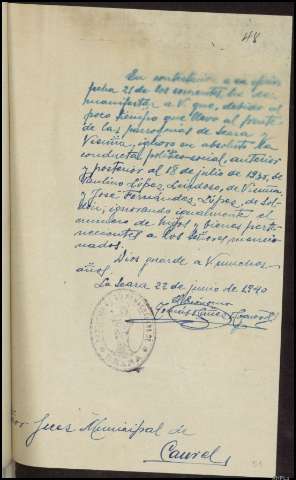 48
En contestación a su oficio
fecha 21 de los corrientes he de
manifestar a V. que, debido al
poco tiempo que llevo al frente
de las parroquias de Seara y
Visuña, ignoro en absoluto la
conducta político-social, anterior
y posterior al 18 de julio de 1936, de
Paulino López, de Visuña,
y José Fernández López, de
ignorando igualmente el
número de hijos y bienes perte-
necientes a los señores mencio-
nados.
Dios guarde a V. muchos
años.
La Seara 22 de junio de 1940
El Ecónomo
Juez Municipal de
Caurel